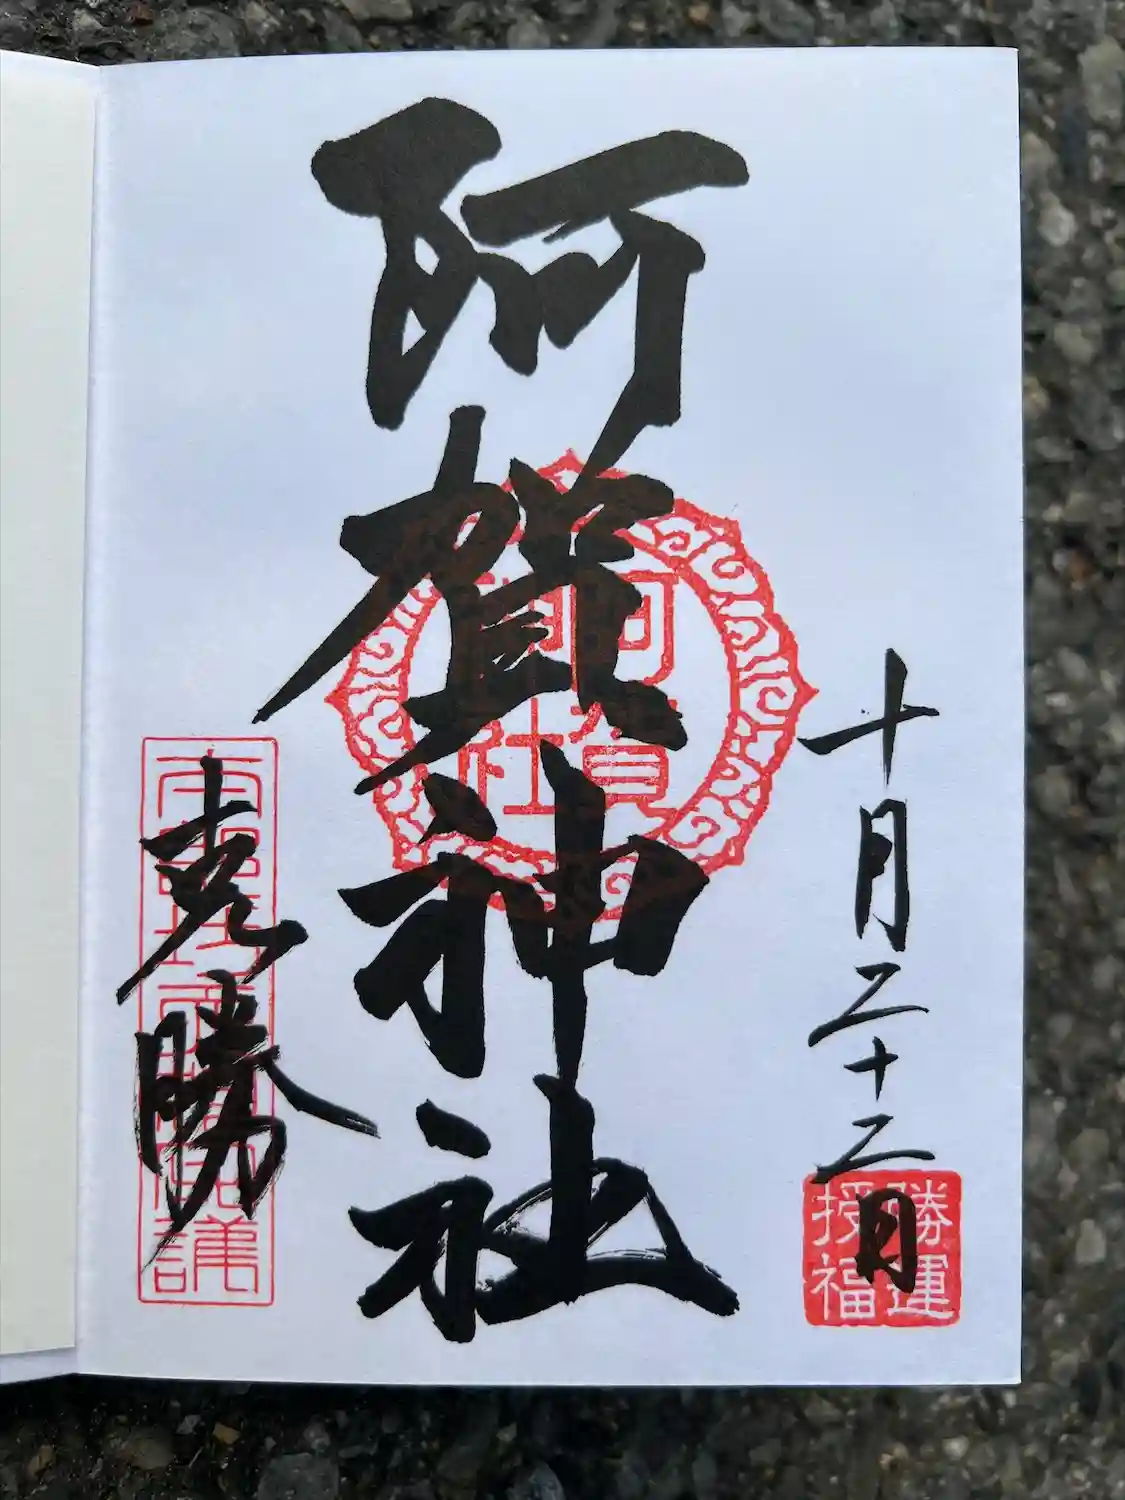 十月二十二日
勝運
授福
阿賀神社
阿賀
神社
克勝